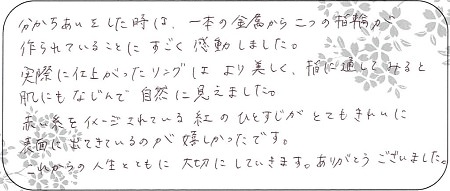 分かちあいをした時は、一本の金属から二つの指輪が
作られていることに すごく 感動しました。
実際に仕上がったリングは より美しく、指に通してみると
肌にもなじんで 自然に見えました。
赤い糸をイメージされている 紅のひとすじが とてもきれいに
表面に出てきているのが 嬉しかったです。
これからの人生とともに 大切にしていきます。ありがとうございました。